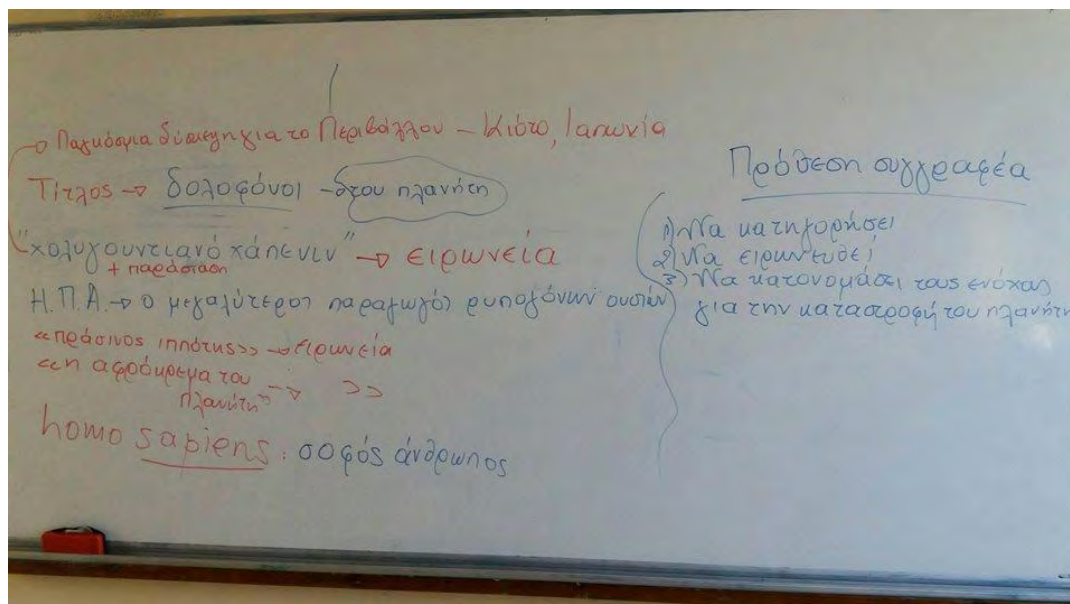 → Παγκόσμια δύσκεψη για το Περιβάλλον - Κιότο, Ιαπωνία
Τίτλος → δολοφόνοι → του πλανήτη
"χολυγουντιανό χάπενιν" → ειρωνεία
+ παράσταση
Η.Π.Α. → ο μεγαλύτερος παραγωγός ρυπογόνων ουσιών
«πράσινος ιππότης» → ειρωνεία
«η αφρόκρεμα του
πλανήτη" → >>
homo sapiens: σοφός άνθρωπος
Πρόθεση συγγραφέα
1) Να κατηγορήσει
2) Να ειρωνευθεί
3) Να κατονομάσει τους ενόχους
για την καταστροφή του πλανήτη